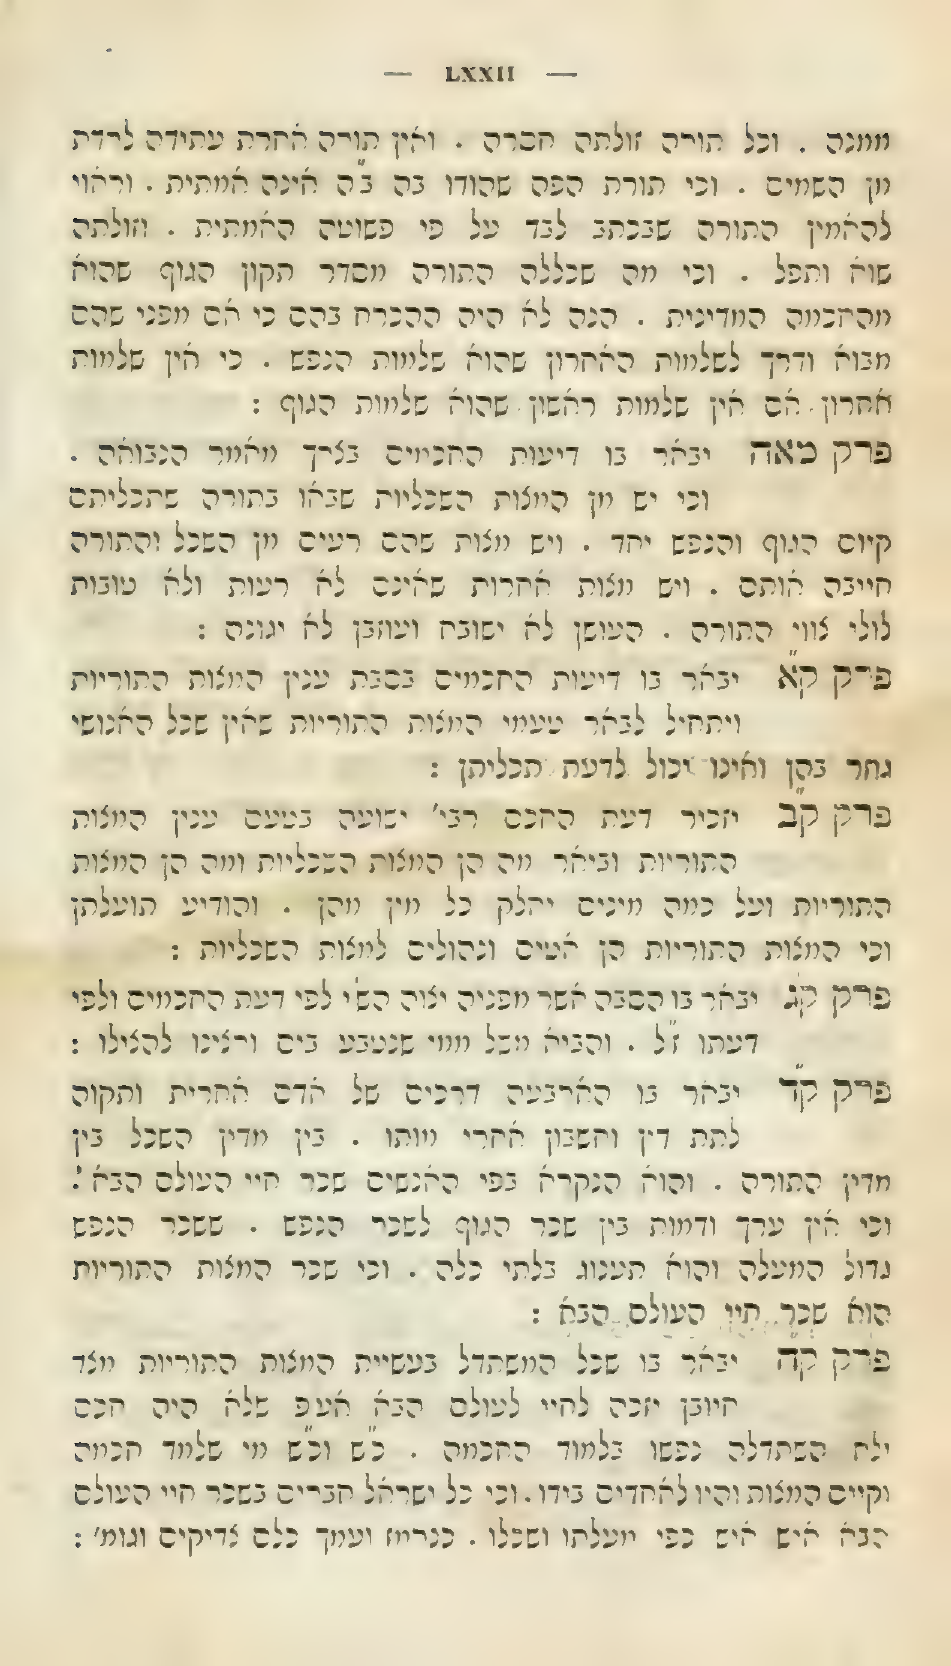 — LXXII —
ממנה . וכל תורה זולתה חסרה . ואין תורה אחרת עתידה לרדת
מן השמים . וכי תורת הפה שהודו בה ב״ה אינה אמתית . וראוי
להאמין התורה שבכתב לבד על פי פשוטה האמתית . וזולתה
שוא ותפל . וכי מה שכללה התורה מסדר תקון הגוף שהוא
מהחכמה המדינית . הנה לא היה ההכרח בהם כי אם מפני שהם
מבוא ודרך לשלמות האחרון שהוא שלמות הנפש . כי אין שלמות
אחרון אם אין שלמות ראשון שהוא שלמות הגוף :
פרק מאה יבאר בו דיעות החכמים בצרך מאמר הנבואה .
וכי יש מן המצות השכליות שבאו בתורה שתכליתם
קיום הגוף והנפש יחד . ויש מצות שהם רעים מן השכל והתורה
חייבה אותם . ויש מצות אחרות שאינם לא רעות ולא טובות
לולי צווי התורה . העושן לא ישובח ועוזבן לא יגונה :
פרק ק״א יבאר בו דיעות החכמים בסבת ענין המצות התוריות
ויתחיל לבאר טעמי המצות התוריות שאין שכל האנושי
גוזר בהן ואינו יכול לדעת תכליתן :
פרק ק״ב יזכיר דעת החכם רבי׳ ישועה בטעם ענין המצות
התוריות וביאר מה הן המצות השכליות ומה הן המצות
התוריות ועל כמה מינים יחלק כל מין מהן . והודיע תועלתן
וכי המצות התוריות הן אטים ונהולים למצות השכליות :
פרק ק״ג יבאר בו הסבה אשר מפניה יצוה הש׳י לפי דעת החכמים ולפי
דעתו ז״ל . והביא משל ממי שנטבע בים ורצינו להצילו :
פרק ק״ד יבאר בו הארבעה דרכים של אדם אחרית ותקוה
לתת דין וחשבון אחרי מותו . בין מדין השכל בין
מדין התורה . והוא הנקרא בפי האנשים שכר חיי העולם הבא :
וכי אין ערך ודמות בין שכר הגוף לשכר הנפש . ששכר הנפש
גדול המעלה והוא תענוג בלתי כלה . וכי שכר המצות התוריות
הוא שכר חיי העולם הבא :
פרק ק״ה יבאר בו שכל המשתדל בעשיית המצות התוריות מצד
חיובן יזכה לחיי לעולם הבא אעפ שלא היה חכם
ולא השתדלה נפשו בלמוד החכמה . כ״ש וכ״ש מי שלמד חכמה
וקיים המצות והיו לאחדים בידו . וכי כל ישראל חברים בשכר חיי העולם
הבא איש איש כפי מעלתו ושכלו . כנרמז ועמך כלם צדיקים וגומ׳ :